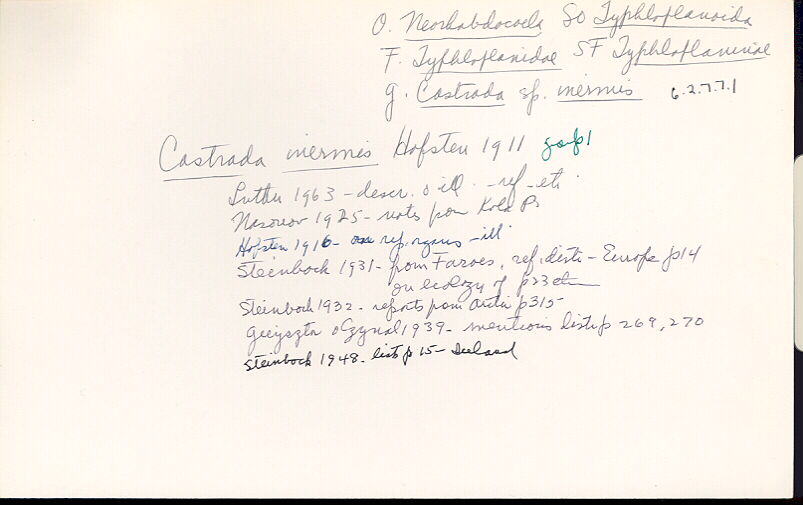 O. Neorhabdocoela SO Typhloplanoida
F. Typhloplanidae SF Typhloplaninae
g. Castrada sp. inermis 6.2.7.7.1
Castrada inermis Hofsten 1911
Luther 1963 - descr. o ill. - ref - etc.
Nasonov 1925 - notes from Kola Ps
Hofsten 1916 - on rep. organs - ill.
Steinbock 1931 - from Faroes, ref, distr. - Europe p14
on ecology of p23
Steinbock 1932 - reports from Arctic p315
Gieysztor o Czynal 1939 - mentions distr p 269, 270
Steinbock 1948 - list p 15 - Iceland